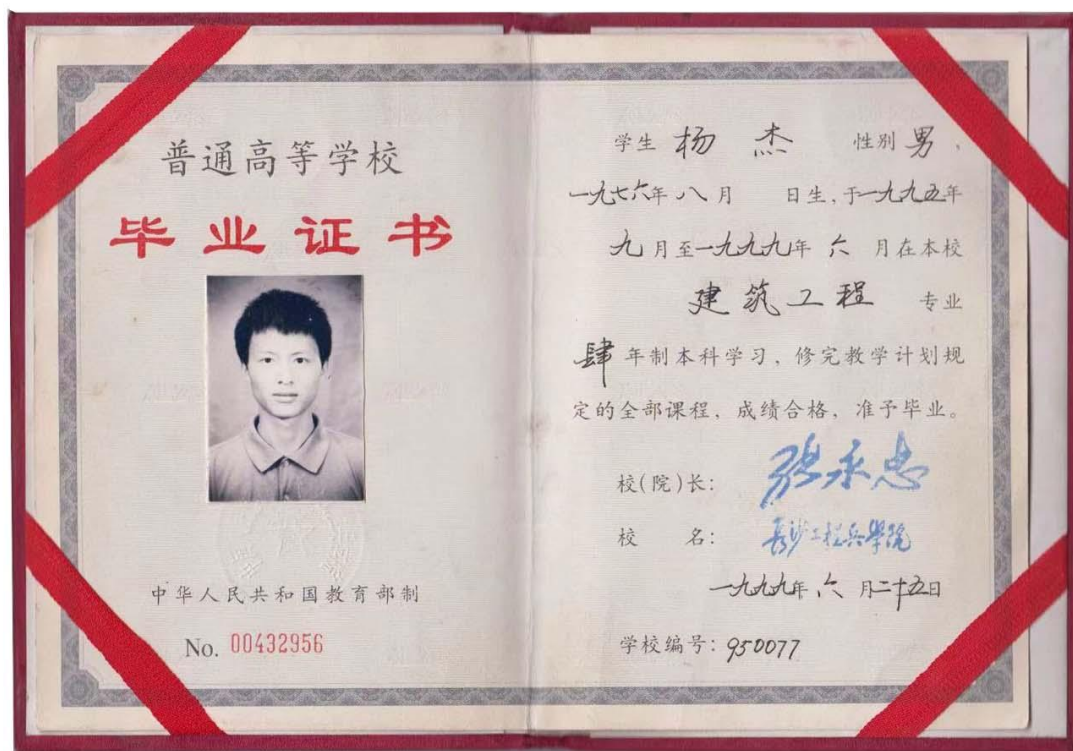 普通高等学校
毕业证书
中华人民共和国教育部制
No. 00432956
学生 杨杰 性别 男，
一九七六年 八月 日生，于一九九五年
九月至一九九九年 六 月在本校
建筑工程 专业
肆 年制本科学习，修完教学计划规
定的全部课程，成绩合格，准予毕业。
校(院)长： 张永忠
校 名： 长沙工程兵學院
一九九九年 六 月二十五日
学校编号：950077